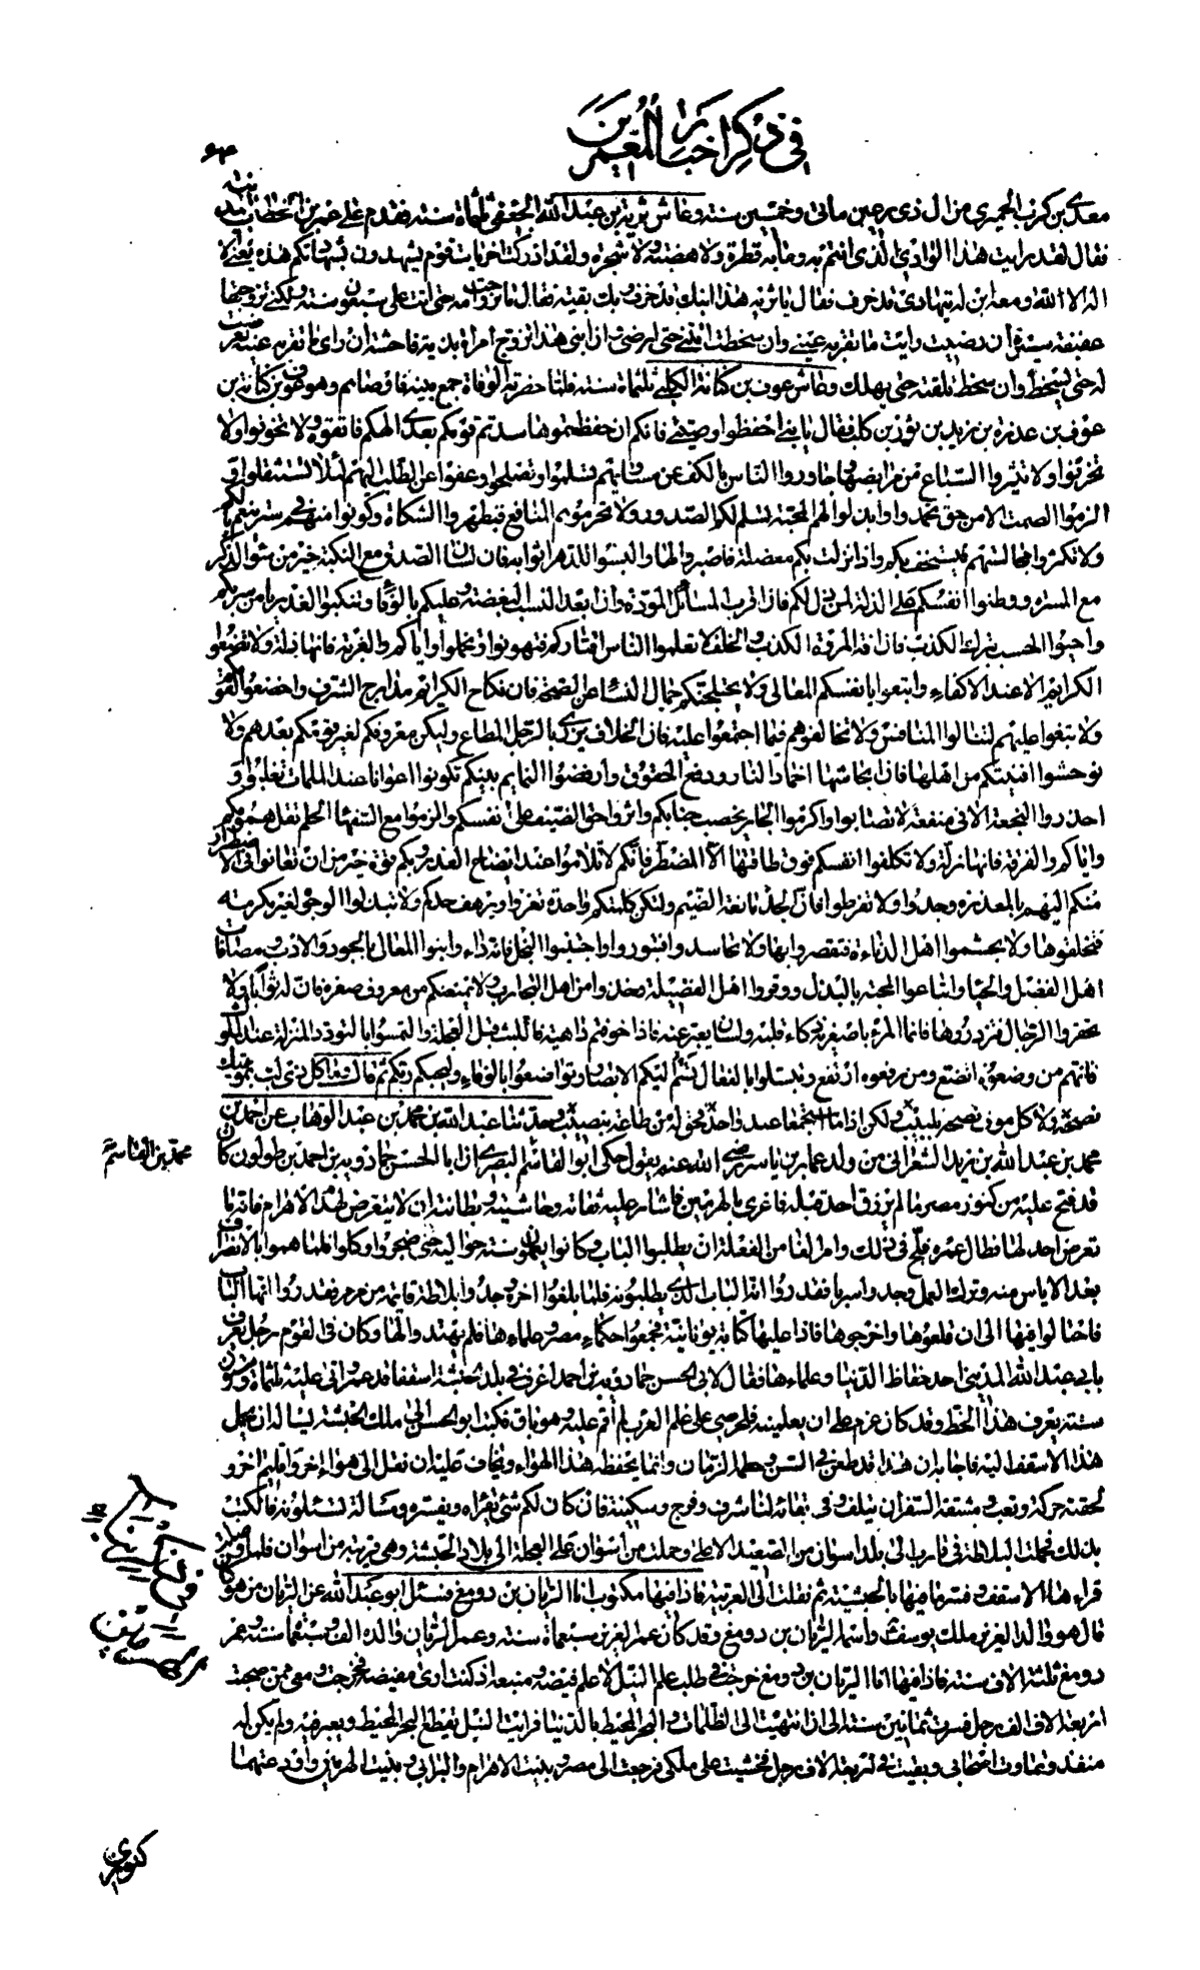 في ذكر اخبار المعمرين
معدي بن كرب الحميري من ال ذي رعين مائتي وخمسين سنة وعاش ثرية بن عبد الله الجعفي ثلثمائة سنة فقدم على عمر بن الخطاب
فقال لقد رايت هذا الوادي الذي انتم به وما به قطرة ولا هضبة ولا شجرة ولقد ادركت اخريات قوم يشهدون بشهادتكم هذه يعني لا
اله الا الله ومعه ابن له يتهادى قد خرف فقال يا ثرية هذا ابنك قد خرف وبك بقية فقال ما تزوجت امه حتى اتت علي سبعون سنة ولكني تزوجتها
عفيفة ستيرة ان رضيت رايت ما تقر به عيني وان سخطت اتتني حتى ارضى وان ابني هذا تزوج امراة بذية فاحشة ان راى ما تقر به عينه تعرضت
له حتى يسخط وان سخط تلقته حتى يهلك وعاش عوف بن كنانة الكلبي ثلثمائة سنة فلما حضرته الوفاة جمع بنيه فاوصاهم وهو عوف بن كنانة بن
عوف بن عذرة بن زيد بن ثور بن كلب فقال يا بني احفظوا وصيتي فانكم ان حفظتموها سدتم قومكم بعدي الهكم فاتقوه ولا تخونوا ولا
تحزنوا ولا تثيروا السباع من مرابضها وجاوروا الناس بالكف عن مساويهم تسلموا وتصلحوا وعفوا عن الطلب اليهم لئلا تستثقلوا و
الزموا الصمت الا من حق تحمدوا وابذلوا لهم المحبة تسلم لكم الصدور ولا تحرموهم المنافع فيظهروا الشكاة وكونوا منهم في ستر ينعم بالكم
ولا تكثروا مجالستهم فيستخف بكم واذا نزلت بكم معضلة فاصبروا لها والبسوا للدهر اثوابه فان لسان الصدق مع النكبة خير من سوء الذكر
مع المسرة ووطنوا انفسكم على الذلة لمن ذل لكم فان اقرب المسائل المودة وان ابعد النسب البغضة وعليكم بالوفاء وتنكبوا الغدر يامن سربكم
واحيوا الحسب بترك الكذب فان افة المروة الكذب والخلف لا تعلموا الناس اقتاركم فتهونوا وتخملوا واياكم والغربة فانها ذلة ولا تضعوا
الكرائم الا عند الاكفاء وابتغوا بانفسكم المعالي ولا يختلجنكم جمال النساء عن الصحة فان نكاح الكرائم مدارج الشرف واخضعوا لقومكم
ولا تبغوا عليهم لتنالوا المنافس ولا تخالفوهم فيما اجتمعوا عليه فان الخلاف يزري بالرجل المطاع وليكن معروفكم لغير قومكم بعدهم ولا
توحشوا افنيتكم من اهلها فان ايحاشها اخماد النار ودفع الحقوق وارفضوا النمايم بينكم تكونوا اعوانا عند الملمات تغلبوا و
احذروا النجعة الا في منفعة لا تصابوا واكرموا الجار يخصب جنابكم واثروا حق الضيف على انفسكم والزموا مع السفهاء الحلم تقل همومكم
واياكم والفرقة فانها ذلة ولا تكلفوا انفسكم فوق طاقتها الا المضطر فانكم لا تلاموا عند اتضاح العذر وبكم قوة خير من ان تعانوا في الاضطرار
منكم اليهم بالمعذرة وجدوا ولا تفرطوا فان الجد مانعة الضيم ولتكن كلمتكم واحدة تعزوا ويرهف حدكم ولا تبذلوا الوجوه لغير مكرمة
فتخلقوها ولا تجشموا اهل الدناءة فتقصروا بها ولا تحاسدوا فتبوروا واجتنبوا البخل فانه داء وابنوا المعالي بالجود والادب ومصافات
اهل الفضل والحياء وابتاعوا المحبة بالبذل ووقروا اهل الفضيلة وخذوا من اهل التجارب ولا يمنعنكم من معروف صغره فان له ثوابا ولا
تحقروا الرجال فتزدروها فانما المرء باصغريه ذكاء قلبه ولسان يعبر عنه فاذا خوفتم داهية فاللبث قبل العجلة والتمسوا بالتودد المنزلة عند الملوك
فانهم من وضعوه اتضع ومن رفعوه ارتفع وتبسلوا بالفعال تسم اليكم الابصار وتواضعوا بالوفاء وليحبكم ربكم ثم قال وما كل ذي لب بمؤتيك
نصحه ولا كل موت نصحه بلبيب ولكن اذا ما استجمعا عند واحد فحق له من طاعة بنصيب وحدثنا عبد الله بن محمد بن عبد الوهاب عن احمد بن
محمد بن عبد الله بن زيد الشعراني من ولد عمار بن ياسر رضي الله عنه يقول حكى ابو القاسم البصري ان ابا الحسن خمارويه بن احمد بن طولون كان
محمد بن القاسم
قد فتح عليه من كنوز مصر ما لم يرزق احد قبله فاغري بالهرمين فاشار عليه ثقاته وحاشيته وبطانته ان لا يتعرض لهدم الاهرام فانه ما
تعرض احد لها فطال عمره فلج في ذلك وامر الفا من الفعلة ان يطلبوا الباب وكانوا يعملون سنة حواليه حتى ضجروا وكلوا فلما هموا بالانصراف
بعد الاياس منه وترك العمل وجدوا سربا فقدروا انه الباب الذي يطلبونه فلما بلغوا اخره وجدوا بلاطة قائمة من مرمر فقدروا انها الباب
فاحتالوا فيها الى ان قلعوها واخرجوها فاذا عليها كتابة يونانية فجمعوا حكماء مصر وعلماءها فلم يهتدوا لها وكان في القوم رجل يعرف
بابي عبد الله المديني احد حفاظ الدنيا وعلماءها فقال لابي الحسن خمارويه بن احمد اعرف في بلد الحبشة اسقفا قد عمر واتى عليه ثلثمائة وستون
سنة يعرف هذا الخط وقد كان عزم على ان يعلمنيه فلحرصي على علم العرب لم اقم عليه وهو باق فكتب ابو الحسن الى ملك الحبشة يساله ان يحمل
هذا الاسقف اليه فاجابه ان هذا قد طعن في السن وحطمه الزمان وانما يحفظه هذا الهواء ويخاف عليه ان نقل الى هواء اخر واقليم اخر و
لحقته حركة وتعب ومشقة السفر ان يتلف وفي بقائه لنا شرف وفرح وسكينة فان كان لكم شئ يقراه ويفسره ومسالة تسئلونه فاكتب
بذلك فحملت البلاطة في قارب الى بلد اسوان من الصعيد الاعلى وحملت من اسوان على العجلة الى بلاد الحبشة وهي قريبة من اسوان فلما وصلت
قراها الاسقف وفسر ما فيها بالحبشية ثم نقلت الى العربية فاذا فيها مكتوب انا الريان بن دومغ فسئل ابو عبد الله عن الريان من هو كان
قال هو والد العزيز ملك يوسف واسمه الريان بن دومغ وقد كان عمر العزيز سبعمائة سنة وعمر الريان والده الف وسبعمائة سنة وعمر
دومغ ثلثة الاف سنة فاذا فيها انا الريان بن دومغ خرجت في طلب علم النيل لاعلم فيضه ومنبعه اذ كنت ارى مفيضه فخرجت ومعي ممن صحبت
اربعة الاف الف رجل فسرت ثمانين سنة الى ان انتهيت الى الظلمات والبحر المحيط بالدنيا فرايت النيل يقطع البحر المحيط ويعبر فيه ولم يكن له
منفذ وتماوت اصحابي وبقيت في اربعة الاف رجل فخشيت على ملكي فرجعت الى مصر وبنيت الاهرام والبرابي وبنيت الهرمين واودعتهما
كنوزي